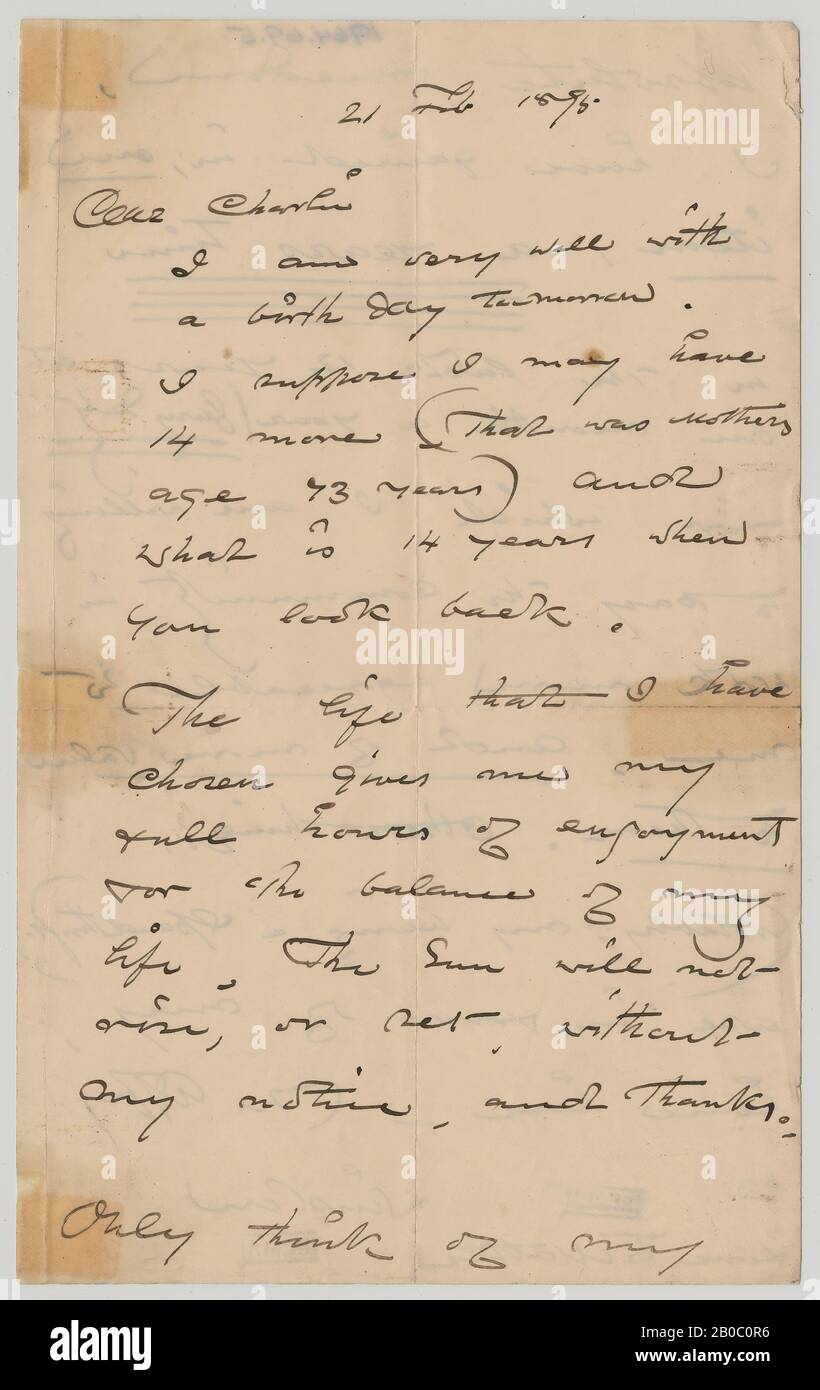 21 Feb 1895.
Dear Charlie
I am very well with
a birth day tomorrow.
I suppose I may have
14 more (That was Mothers
age 73 years) and
what is 14 years when
you look back.
The life that I have
chosen gives me my
full hours of enjoyment
for the balance of my
life. The Sun will not
rise, or set, without
my notice, and thanks.
Only think of my
alamy
alamy
alamy
Image ID: 2B0C0R6
www.alamy.com